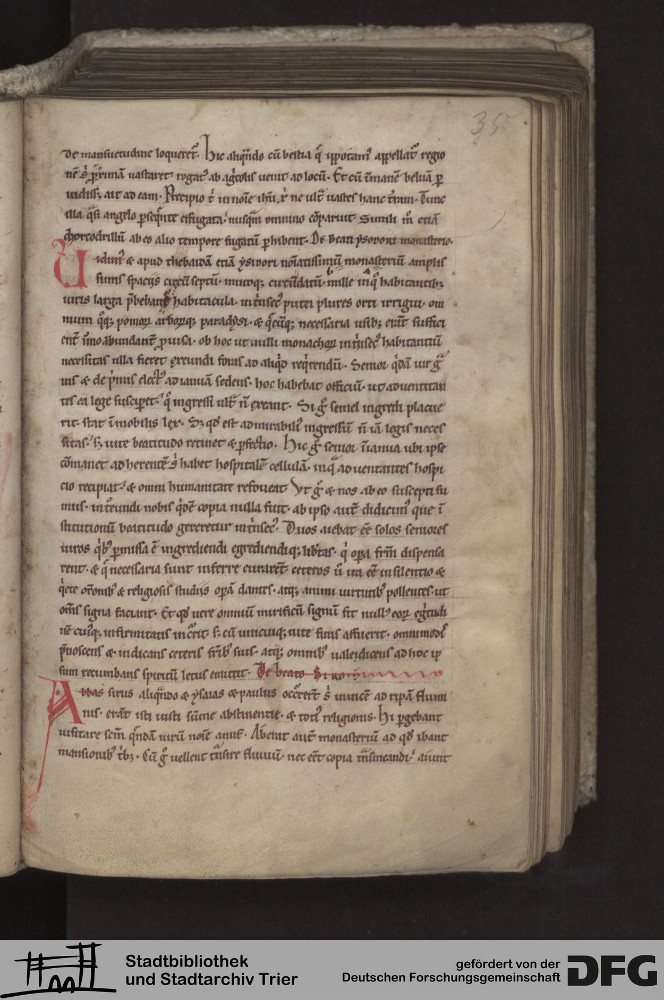 35
de mansuetudine loqueret̉. Hic aliqn̄do cū bestia q̄ ypotam̉ appellat̉ regio
nē s̄ p̱ximā vastaret rogat̉ ab ag̉colis uenit ad locū. Et cū īmanē beluā p̱
uidiss; ait ad eam. Precipio t̄ in noīe ih̄u x̄ ne ult̄ uastes hanc t̉ram. Tunc
illa q̄si angelo p̱seq̄nte effugata nusqm̄ omnino cōparuit. Simili m̄ etiā
chorcodrillū ab eo alio tempore fugatū p̱hibent. De beati ysidori monasterio.
Uidim̉ & apud thebaidam etiā ysidori noīatissimū monasteriū amplis
simis spaciis circūseptū. muroq; circūdatū. mille ī q̊ habitantib;
uiris larga p̄bebant̉ habitacula. intrīsec̉ putei plures orti irrigui. om
nium q̊q; pomor̄ arborq; paradysi. & q̄cūq; necessaria usib; erāt suffici
ent̉ īmo abundant̉ p̱uisa. ob hoc ut nulli monachor̄ intrīsec̉ habitantiū
necessitas ulla fieret exeundi foras ad aliq̊d req̉rendū. Senior q̉dā uir g̊
uis & de p̉mis elect̉ ad ianuā sedens. hoc habebat officiū. ut aduentan
tes ea lege suscip̱et. q̊ ingressi ult̄ n̄ exeant. Si g̊ semel ingredi placue
rit. stat īmobilis lex. S; qd̄ est admirabilỉ ingressus n̄ iā legis neces
sitas. s; uite beatitudo retinet & p̱fectio. Hic g̊ senior ī ianua ubi ipse
cōmanet adherentē s̄ habet hospitale cellulā. in q̄ aduentantes hospi
cio recipiat. & omni humanitate refoueat. Vt g̊ & nos ab eo suscepti su
mus. intreundi nobis q̉dē copia nulla fuit. ab ipso aut̄ didicim̉ que ī
stitutionū beatitudo gereretur intrīsec̉. Duos aiebat eē solos seniores
uiros q̉b̉ p̱missa ē ingrediendi egrediendiq; lib̄tas. q̉ opa frm̄ dispensa
rent. & q̄ necessaria sunt inferre curarēt. ceteros ū ita eē in silentio &
q̉ete or̄onib; & religiosis studiis opam dantes. atq; animi uirtutib; pollentes. ut
om̄s signa faciant. Et qd̄ uere omniū mirificū signū sit null̉ eor̄ eg̉tudi
nē cuỉq; infirmitatis incurrit. s; cū unicuiq; uite finis affuerit. omnimodo
p̄noscens & indicans ceteris fratrib; suis. atq; omnib; ualedicens ad hoc ip
sum recumbans spiritū letus emittit. De beato
Abbas sirus aliqn̄do & ysaias & paulus occurrēt s̄ inuicē ad ripā flumi
nis. erāt isti uiri sūme abstinentie. & totỉ religionis. Hi p̱gebant
uisitare senē q̄ndā uirū noīe anuf. Aberat aut̄ monasteriū ad qd̄ ibant
mansionib; trib;. Cū g̊ uellent trāsire fluuiū. nec eēt copia trāsmeandi. aiunt
Stadtbibliothek
und Stadtarchiv Trier
gefördert von der
Deutschen Forschungsgemeinschaft
DFG